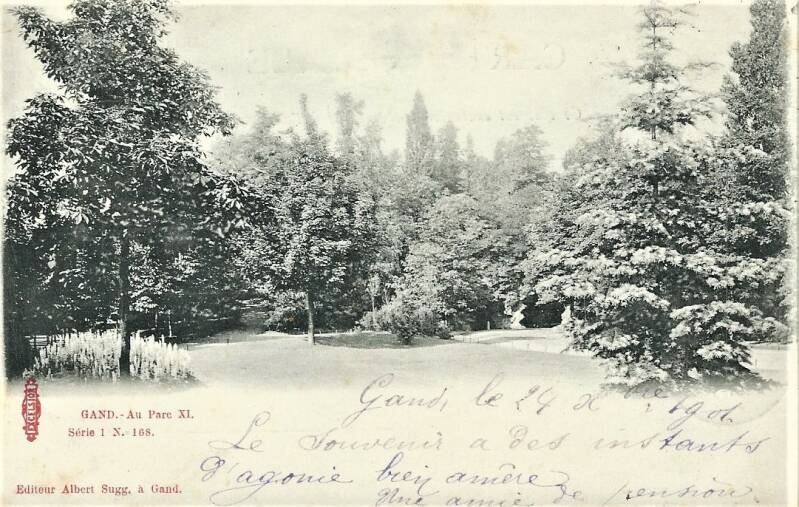 EXCELSIOR
GAND.-Au Parc XI.
Série 1 N. 168.
Editeur Albert Sugg, à Gand.
Gand, le 24 Xbre 1901
Le Souvenir a des instants
D'agonie bien amère
Une amie de pension